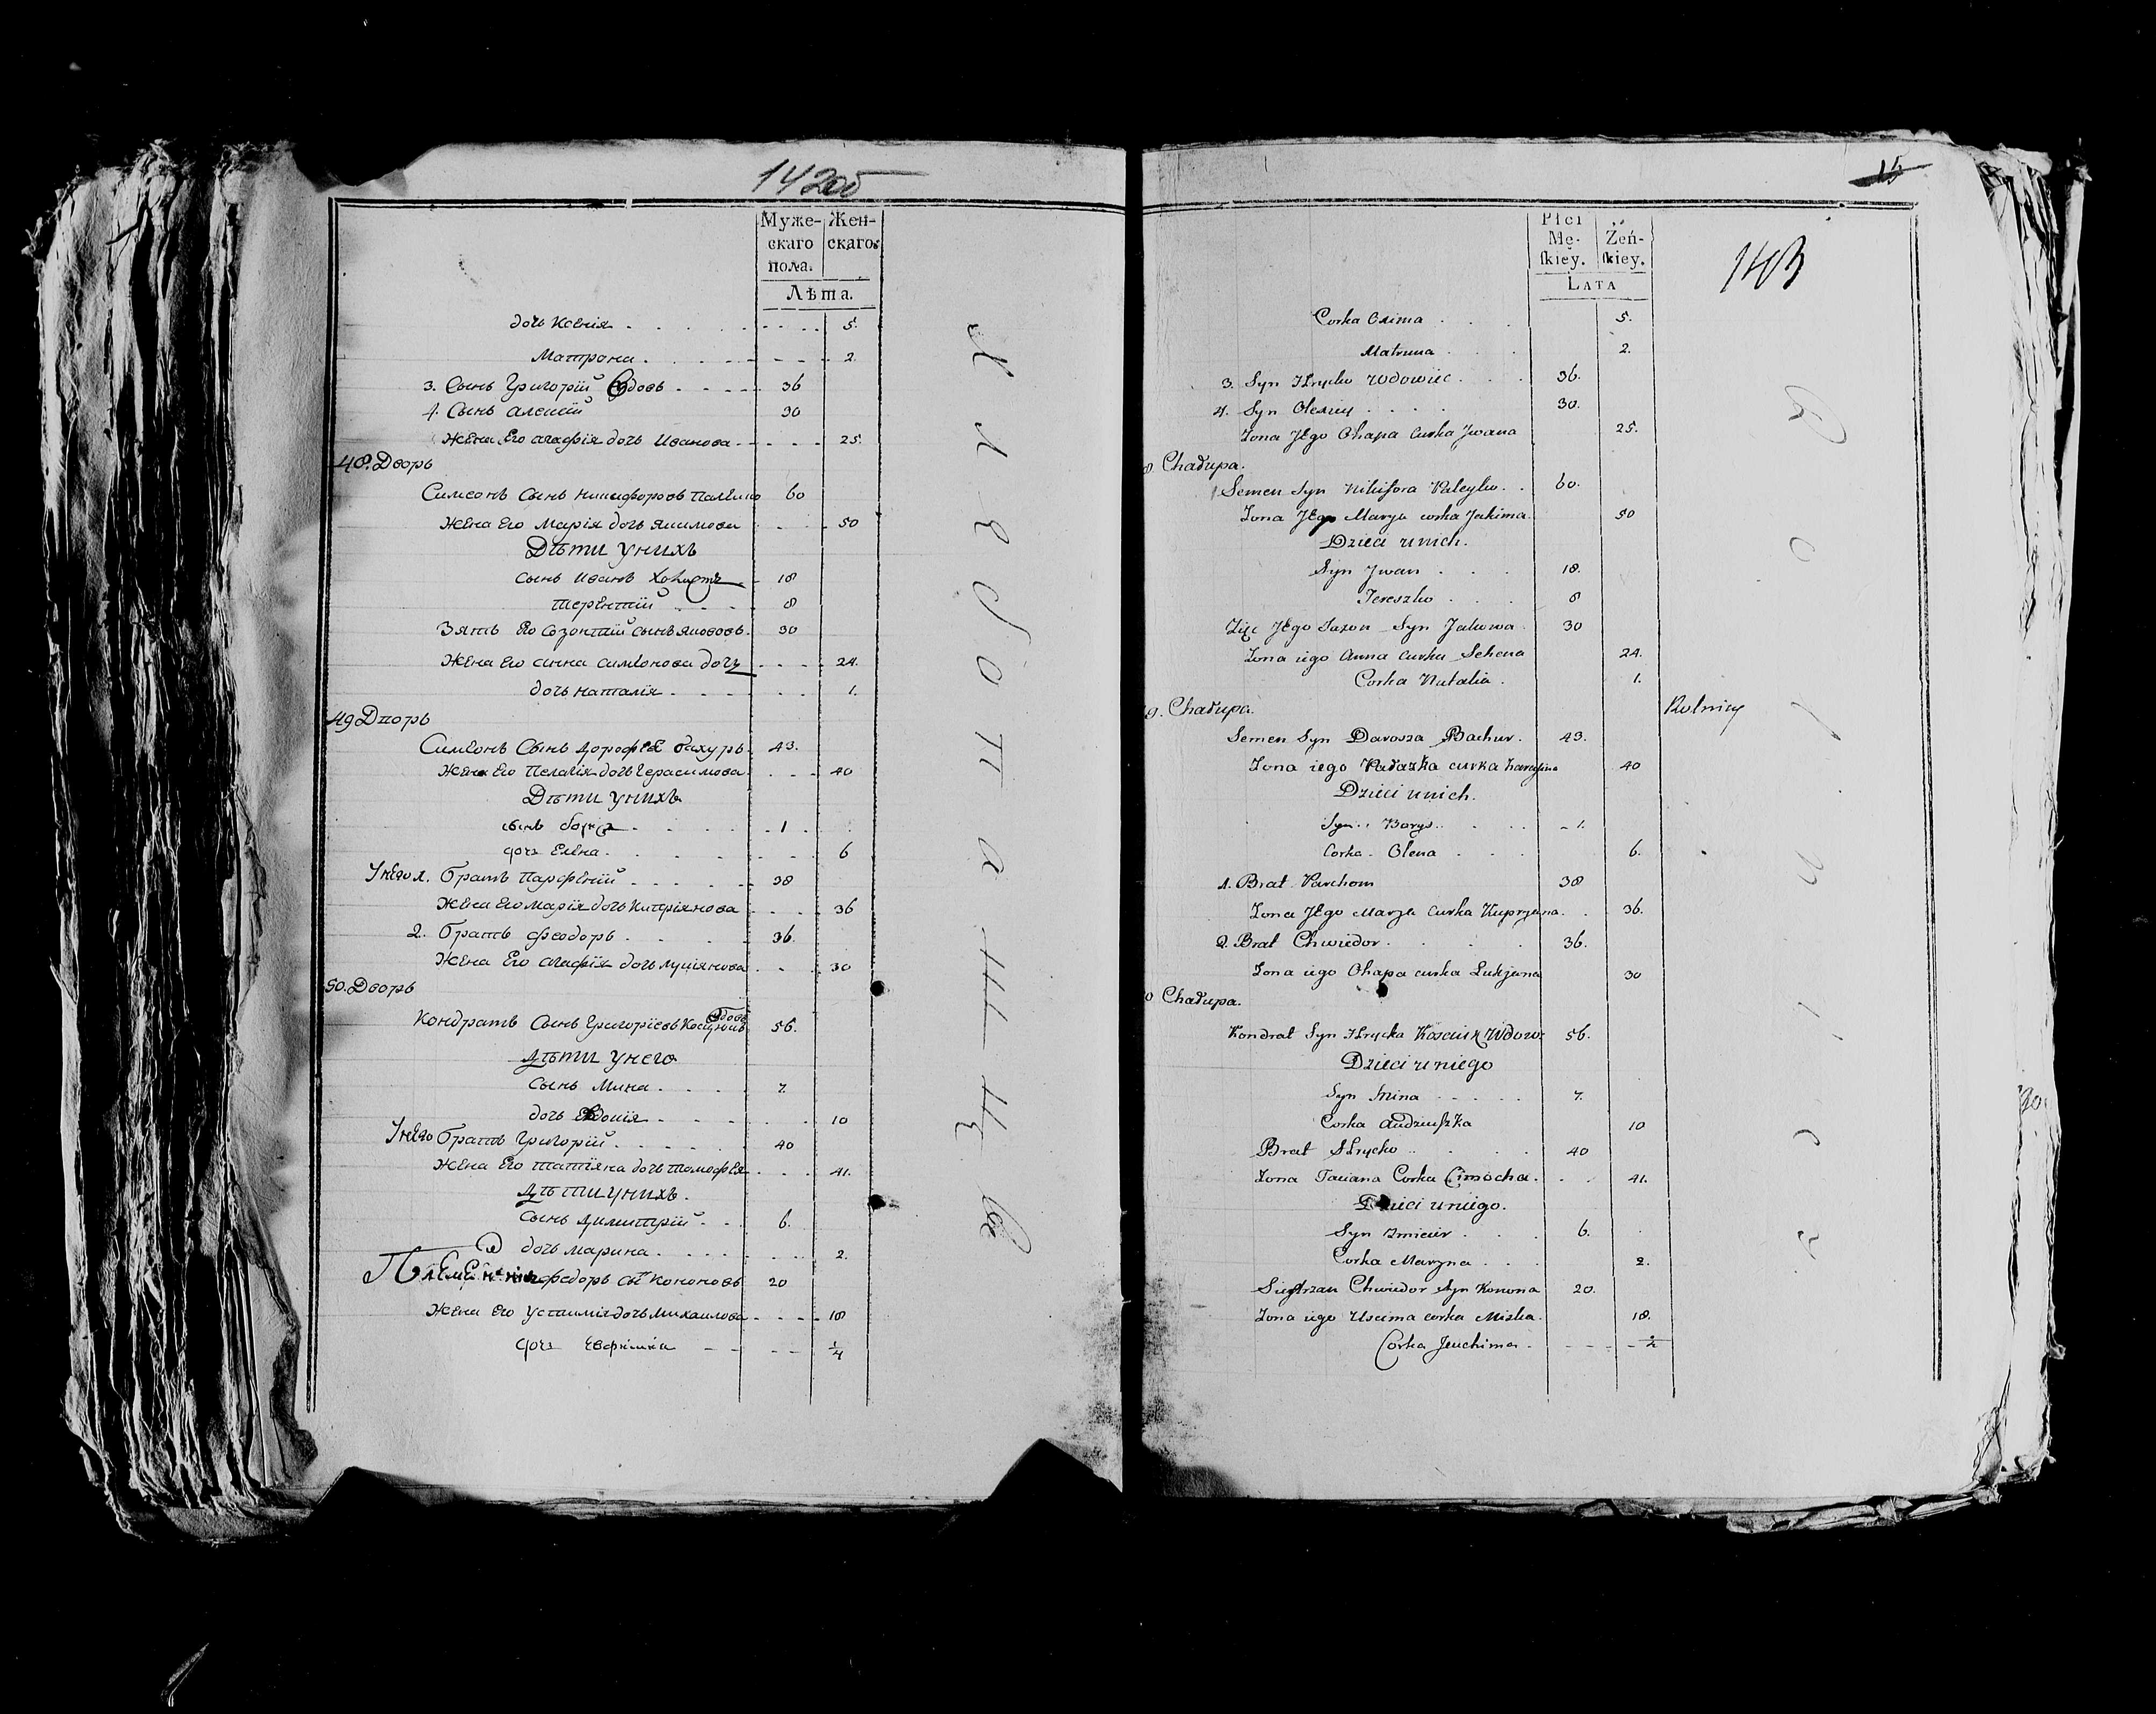 142об
Муже- Жен-
скаго скаго.
пола.
Лѣта.
дочь Ксенія 5.
Матрона 2.
3. Сынъ Григорій Вдовъ 36
4. Сынъ Алексій 30
Жена Его Агафія дочь Иванова 25.
48. Дворъ
Симеонъ Сынъ Никифоровъ 60
Жена Его Марія дочь Якимова 50
Дѣти у нихъ
Сынъ Иванъ Холистъ 18
Терентій 8
Зять Его Созонтій Сынъ Яковъ 30
Жена Его Анна Симеонова дочь 24.
дочь Наталія 1.
49 Дворъ
Симеонъ Сынъ Дорофея Бахуръ 43.
Жена Его Пелагія дочь Герасимова 40
Дѣти у нихъ
сынъ Борисъ 1
дочь Елена 6
У него 1. Братъ Парфеній 38
Жена Его Марія дочь Кипріянова 36
2. Братъ Феодоръ 36.
Жена Его Агафія дочь Лукіянова 30
50. Дворъ
Кондратъ Сынъ Григоріевъ Косцюкъ Вдовъ 56.
Дѣти у него
Сынъ Мина 7.
дочь Евдокія 10
У него Братъ Григорій 40
Жена Его Татіяна дочь Тимофея 41.
Дѣти у нихъ.
Сынъ Димитрій 6.
дочь Марина 2.
Племенникъ Федоръ Сынъ Кононовъ 20
Жена Его Устимія дочь Михаилова 18
дочь Евфимія 1/4
Хлеборопашцы
15
143
Płci
Mę- Żeń-
skiey. skiey.
Lata
Corka Oxima 5.
Matruna 2.
3. Syn Hrycko Wdowiec 36.
4. Syn Olexiy 30.
Zona Jego Ohapa curka Jwana 25.
8 Chałupa.
Semen Syn Nikifora Paleyko 60.
Zona Jego Marya corka Jakima 50
Dzieci u nich.
Syn Jwan 18.
Tereszko 8
Zięc Jego Sazon Syn Jakowa 30
Zona iego Anna curka Semena 24.
Corka Natalia 1.
9. Chałupa. Rolnicy
Semen Syn Darosza Bachur 43.
Zona iego Pałazka curka Harasima 40
Dzieci u nich.
Syn Borys 1.
Corka Olena 6.
1. Brat Parchom 38
Zona Jego Marya Curka Kupryana 36.
2. Brat Chwiedor 36.
Zona iego Ohapa curka Lukjana 30
0 Chałupa.
Kondrat Syn Hrycka Kosciuk Wdow: 56.
Dzieci u niego
Syn Mina 7.
Corka Audziuszka 10
Brat Hrycko 40
Zona Taciana Corka Cimocha 41.
Dzieci u niego.
Syn Zmicier 6.
Corka Maryna 2.
Siestrzan Chwiedor Syn Konona 20.
Zona iego Uscima corka Miska 18.
Corka Jeuchima